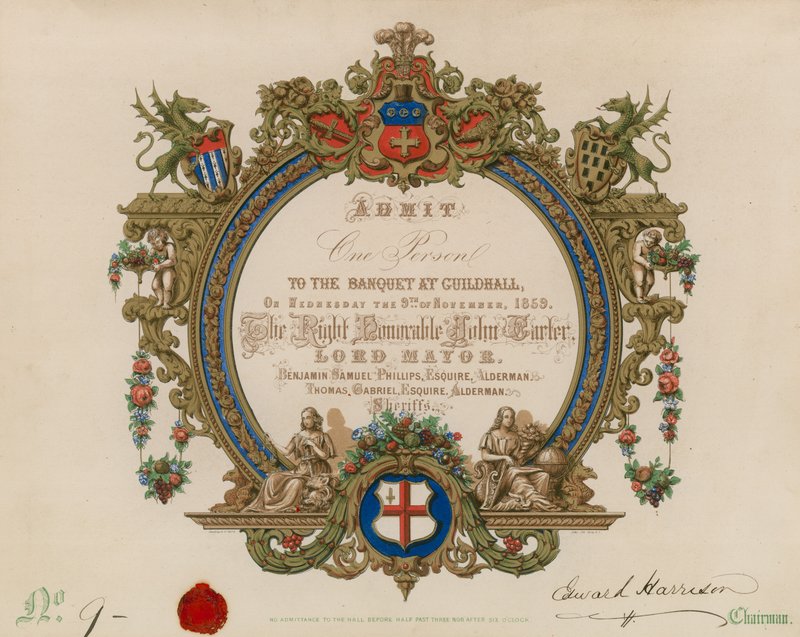 ADMIT
One Person
TO THE BANQUET AT GUILDHALL,
ON WEDNESDAY THE 9TH OF NOVEMBER, 1859.
The Right Honorable John Carter,
LORD MAYOR.
BENJAMIN SAMUEL PHILLIPS, ESQUIRE, ALDERMAN.
THOMAS, GABRIEL, ESQUIRE, ALDERMAN.
Sheriffs.
No. 9-
NO ADMITTANCE TO THE HALL BEFORE HALF PAST THREE NOR AFTER SIX O'CLOCK.
Edward Harrison
Chairman.